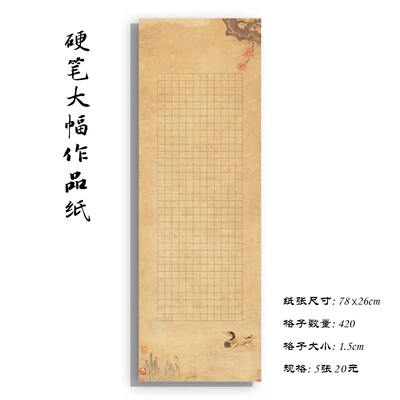 硬笔大幅作品纸
纸张尺寸: 78×26cm
格子数量: 420
格子大小: 1.5cm
规格: 5张20元